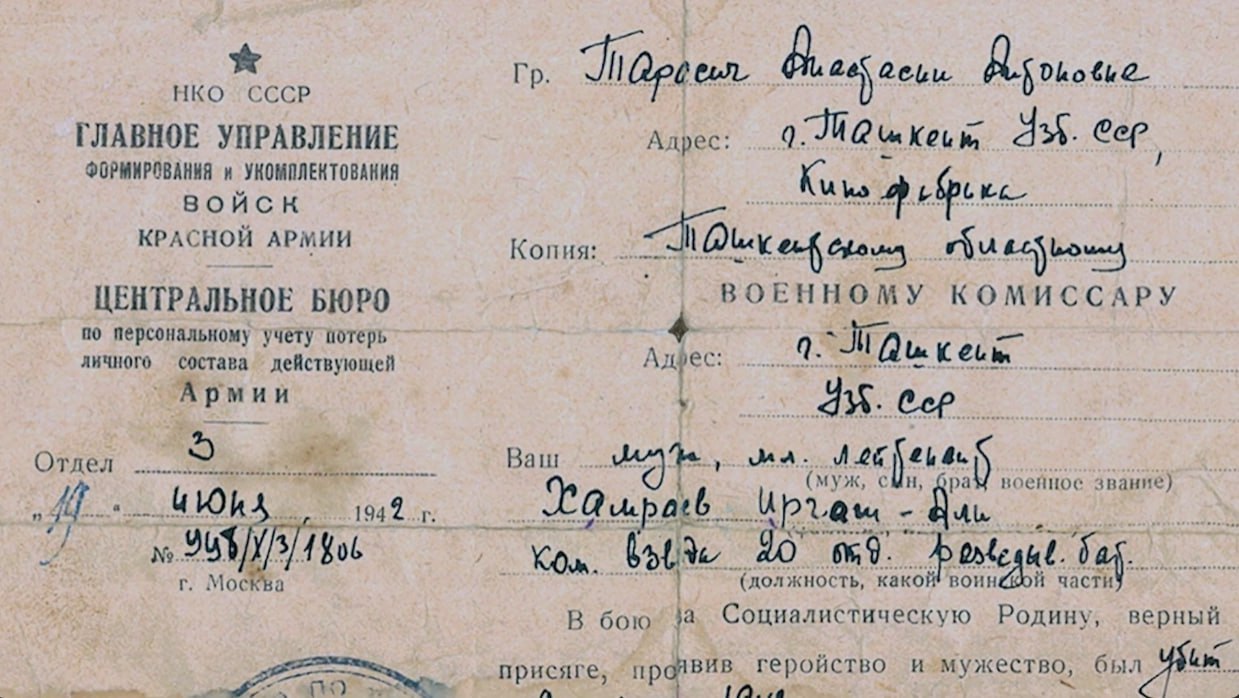 НКО СССР
ГЛАВНОЕ УПРАВЛЕНИЕ
ФОРМИРОВАНИЯ и УКОМПЛЕКТОВАНИЯ
ВОЙСК
КРАСНОЙ АРМИИ
ЦЕНТРАЛЬНОЕ БЮРО
по персональному учету потерь
личного состава действующей
Армии
Отдел 3
„19“ июня 1942 г.
№ 998/X/3/1806
г. Москва
Гр. Тарасич Анастасии Антоновне
Адрес: г. Ташкент Узб. ССР,
Кинофабрика
Копия: Ташкентскому областному
ВОЕННОМУ КОМИССАРУ
Адрес: г. Ташкент
Узб. ССР
Ваш муж, мл. лейтенант
(муж, сын, брат, военное звание)
Хамраев Иргаш-Али
ком. взвода 20 отд. разведыв. бат.
(должность, какой воинской части)
В бою за Социалистическую Родину, верный
присяге, проявив геройство и мужество, был убит
ПО